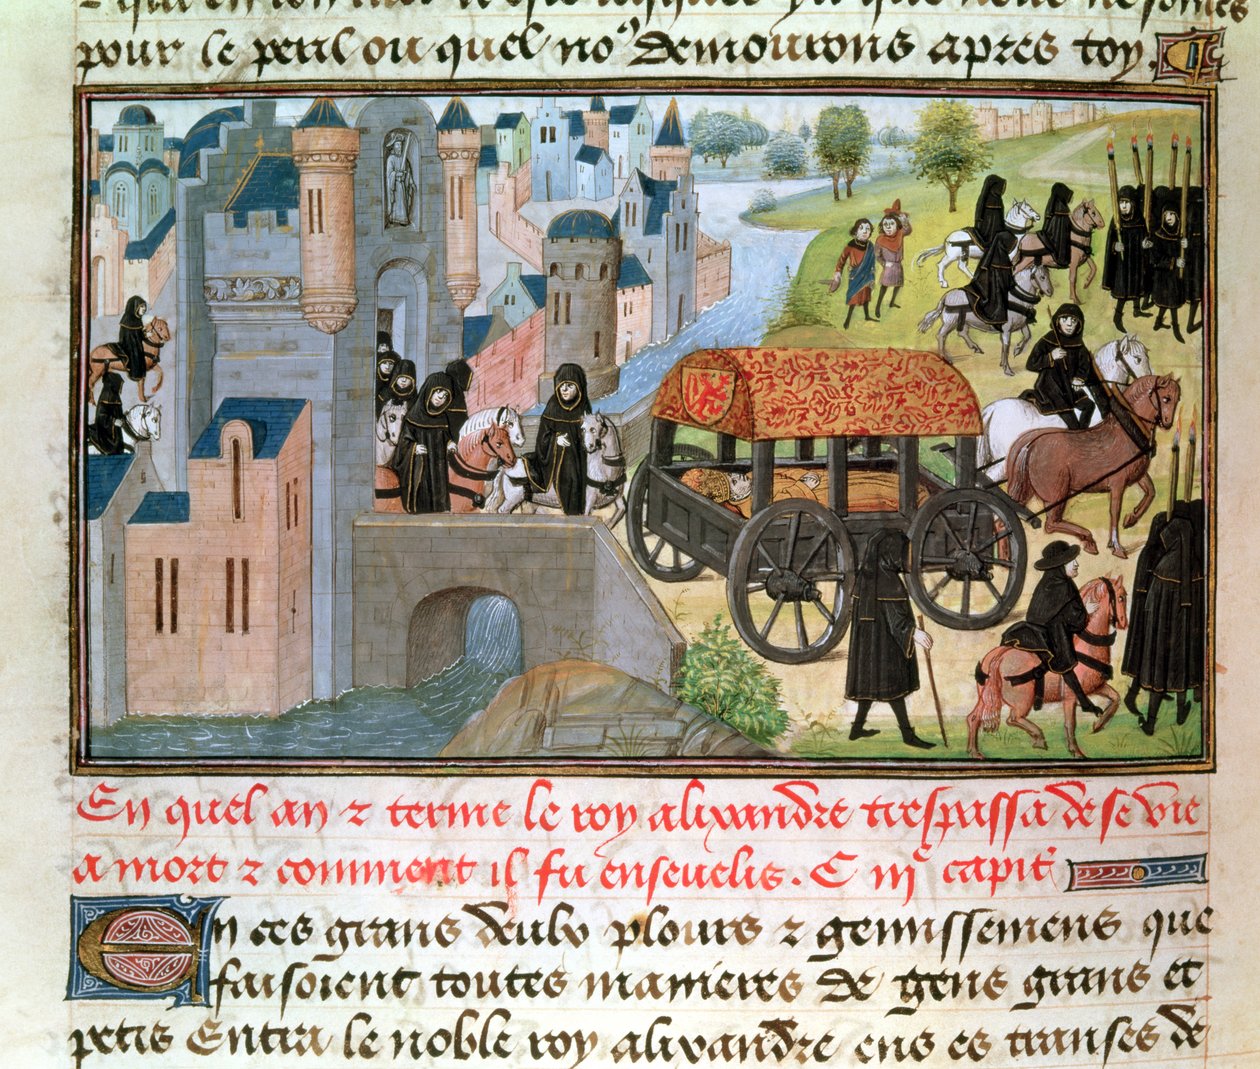 pour le peril ou quel no⁹ demourons apres toy.
En quel an ⁊ terme le roy alixandre trespassa de se vie
a mort ⁊ comment il fu enseuelis. C iiijͤ capitͬ
En ces grans deulx plours ⁊ gemissemens que
faisoient toutes manieres de gens grans et
petis Entra le noble roy alixandre ens es transes de